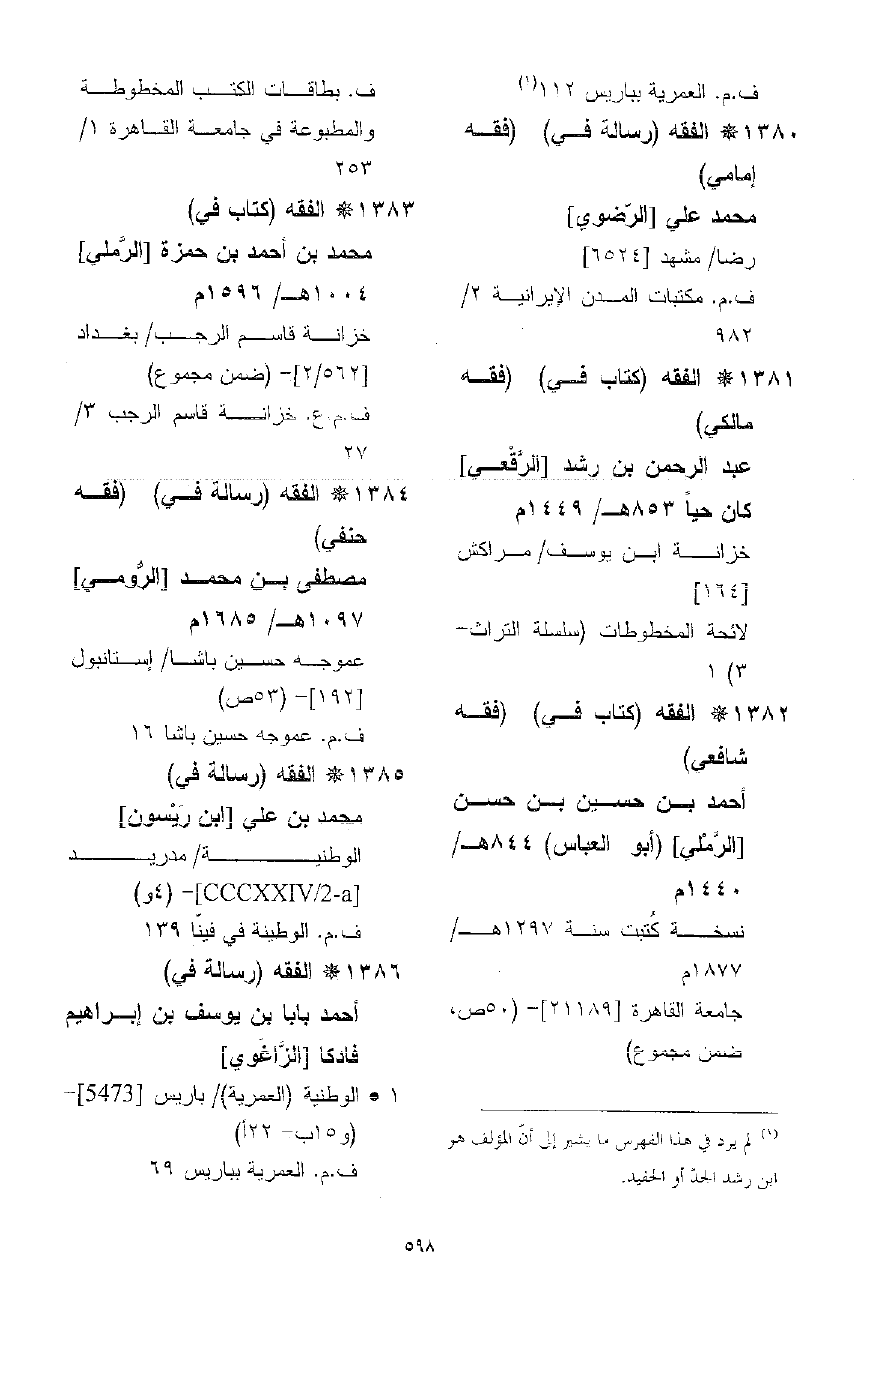 ف.م. العمرية بباريس ١١٢(١)
١٣٨٠ * الفقه (رسالة في) (فقه
إمامي)
محمد علي [الرّضوي]
رضا/ مشهد [٦٥٢٤]
ف.م. مكتبات المدن الإيرانية ٢/
٩٨٢
١٣٨١ * الفقه (كتاب في) (فقه
مالكي)
عبد الرحمن بن رشد [الرَّقْعي]
كان حياً ٨٥٣هـ/ ١٤٤٩م
خزانة ابن يوسف/ مراكش
[١٦٤]
لائحة المخطوطات (سلسلة التراث-
٣) ١
١٣٨٢ * الفقه (كتاب في) (فقه
شافعي)
أحمد بن حسين بن حسن
[الرَّمْلي] (أبو العباس) ٨٤٤هـ/
١٤٤٠م
نسخة كُتبت سنة ١٢٩٧هـ/
١٨٧٧م
جامعة القاهرة [٢١١٨٩]- (٥٠ص،
ضمن مجموع)
(١) لم يرد في هذا الفهرس ما يشير إلى أنّ المؤلف هو
ابن رشد الجدّ أو الحفيد.
ف. بطاقات الكتب المخطوطة
والمطبوعة في جامعة القاهرة ١/
٢٥٣
١٣٨٣ * الفقه (كتاب في)
محمد بن أحمد بن حمزة [الرَّملي]
١٠٠٤هـ/ ١٥٩٦م
خزانة قاسم الرجب/ بغداد
[٢/٥٦٢]- (ضمن مجموع)
ف.م.ع. خزانة قاسم الرجب ٣/
٢٧
١٣٨٤ * الفقه (رسالة في) (فقه
حنفي)
مصطفى بن محمد [الرُّومي]
١٠٩٧هـ/ ١٦٨٥م
عموجه حسين باشا/ إستانبول
[١٩٢]- (٥٣ص)
ف.م. عموجه حسين باشا ١٦
١٣٨٥ * الفقه (رسالة في)
محمد بن علي [ابن رَيْسون]
الوطنية/ مدريد
[CCCXXIV/2-a]- (٤و)
ف.م. الوطنية في فينّا ١٣٩
١٣٨٦ * الفقه (رسالة في)
أحمد بابا بن يوسف بن إبراهيم
فادكا [الزَّاغَوي]
١ • الوطنية (العمرية)/ باريس [5473]-
(و١٥ب- ٢٢أ)
ف.م. العمرية بباريس ٦٩
٥٩٨